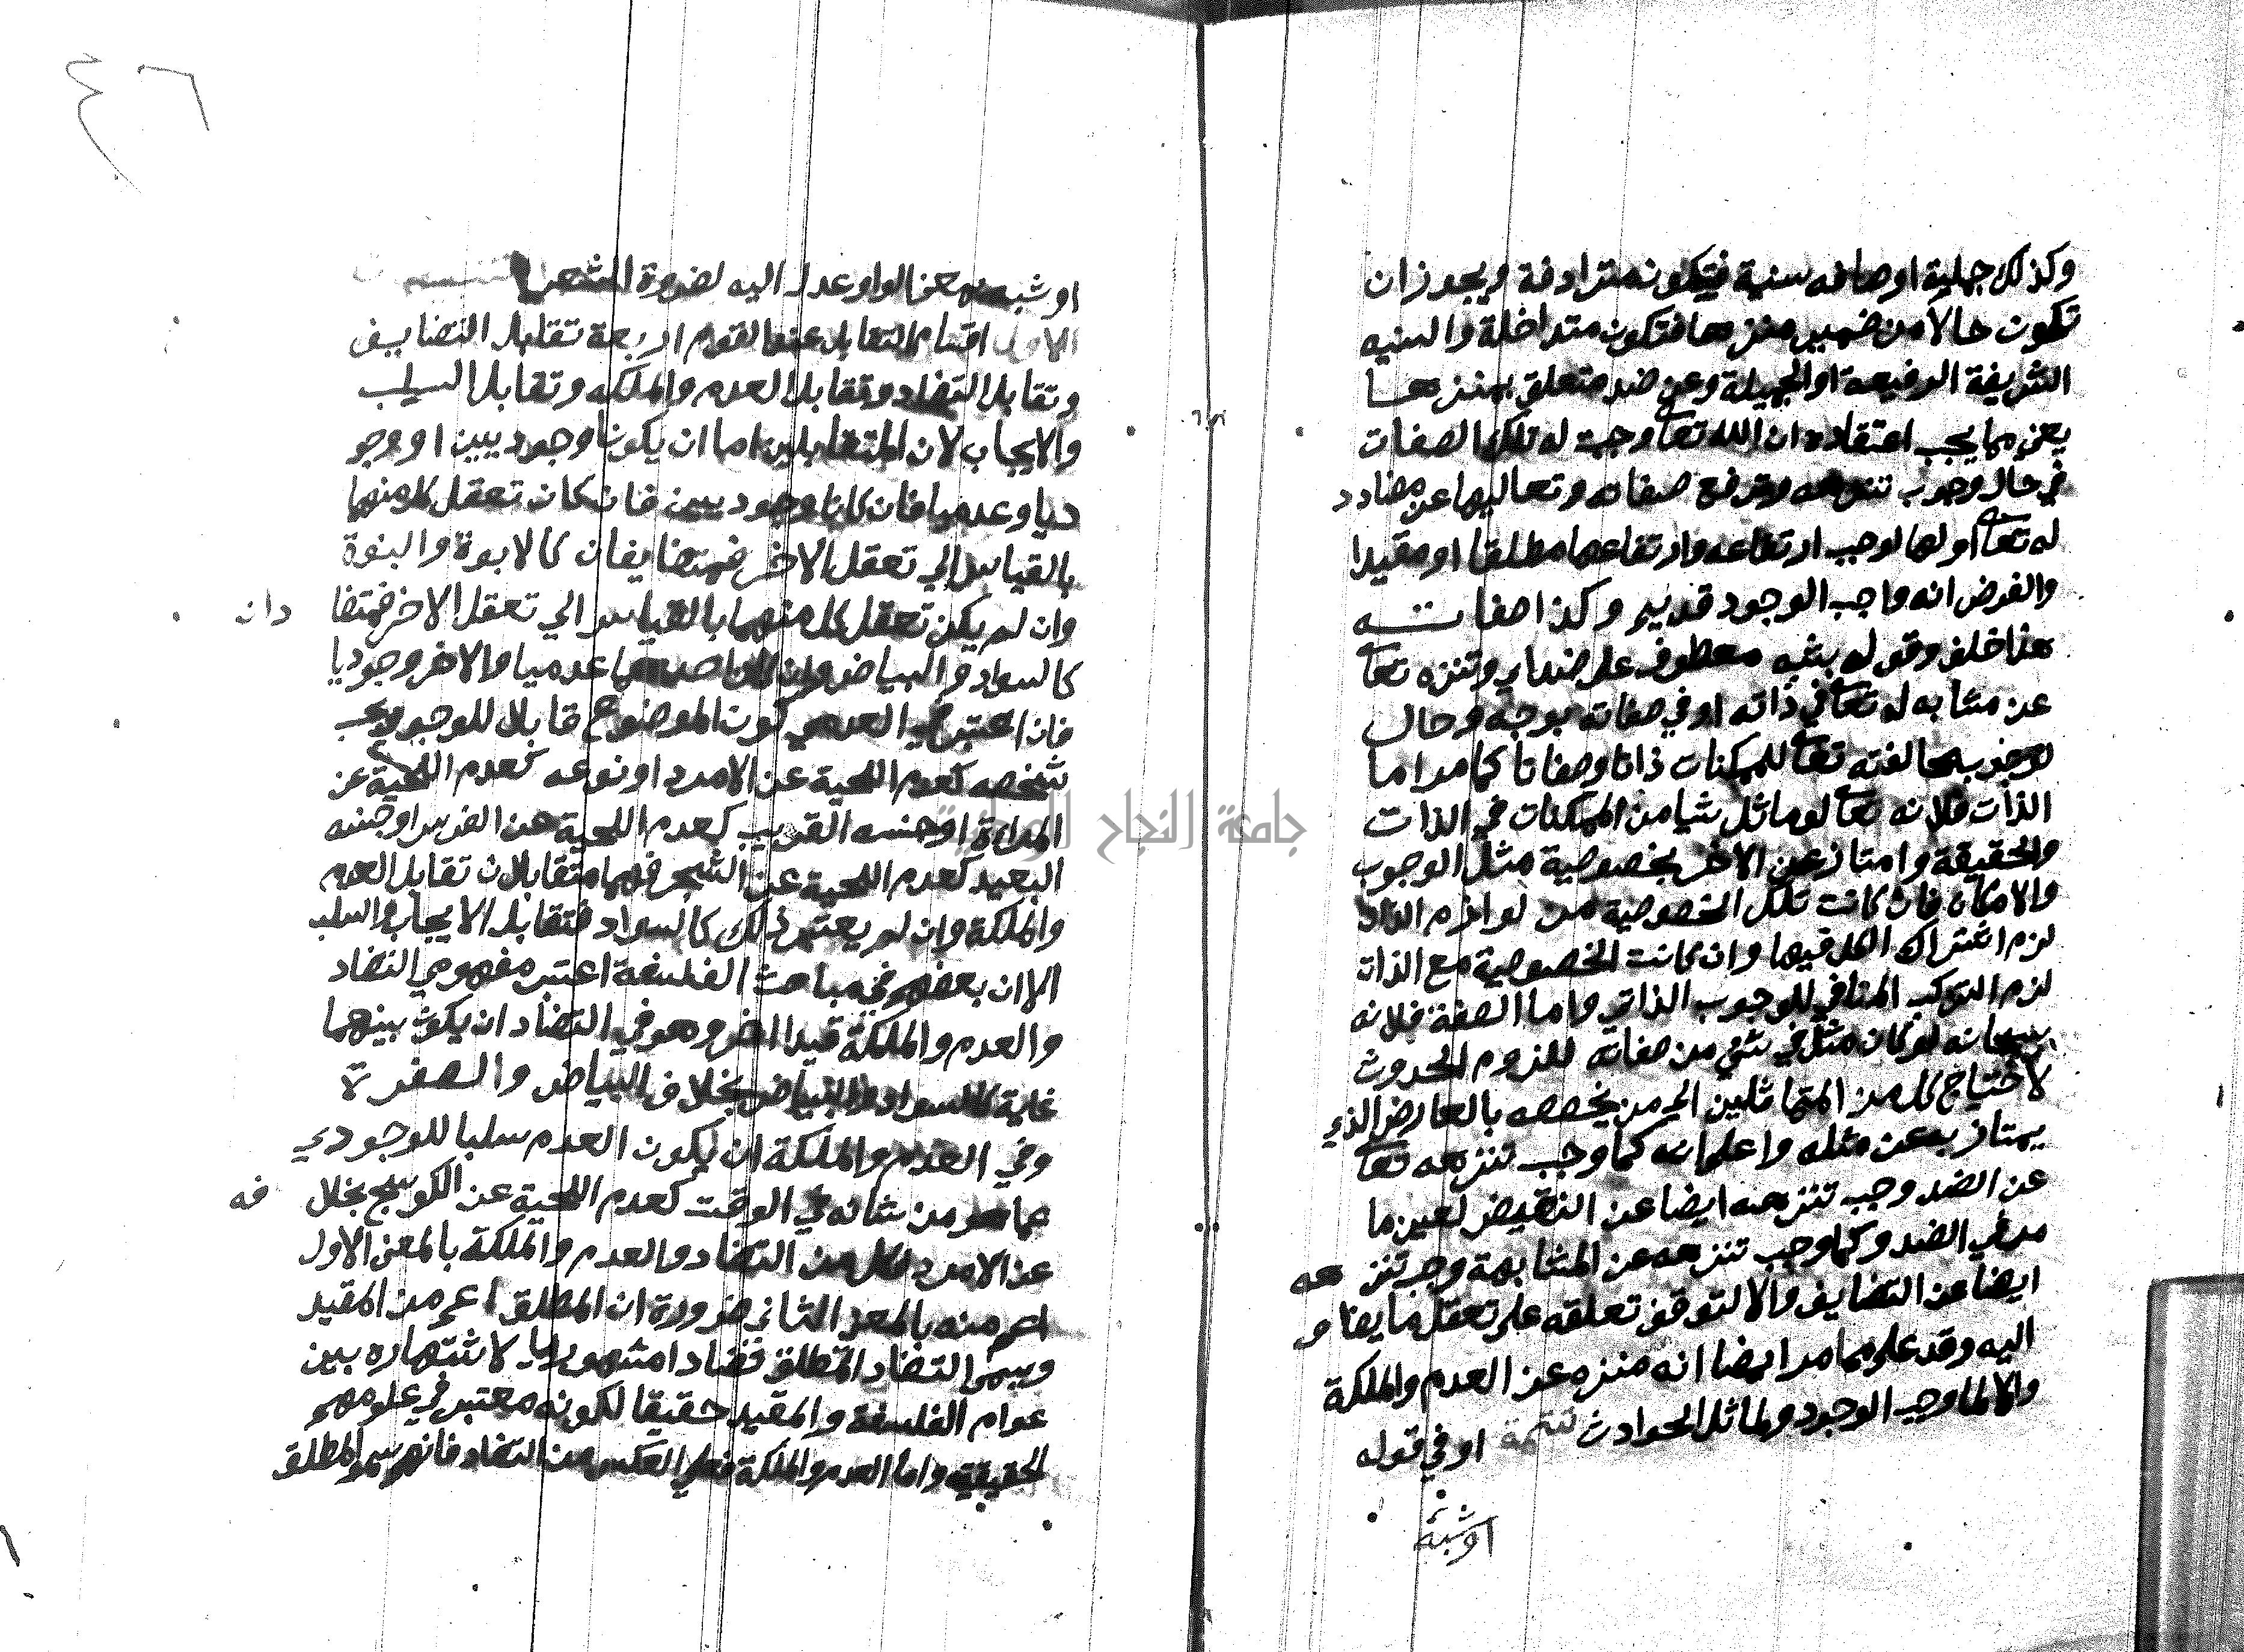 وكذلك جملية اوصافه سنية فيتكونه مترادفة ويجوزان
تكون حالا من ضمير منزها فتكون متداخلة والسنيه
الشريفة الرفيعة او الجميلة وعن ضد متعلق بمنزها
يعني مما يجب اعتقاده ان الله تعا وجبت له تلك الصفات
في حال وجوب تنزهه وترفع صفاته وتعاليها عن مضادد
له تعا اولها لوجب ارتفاعه وارتفاعها مطلقا او مقيدا
والفرض انه واجب الوجود قديم وكذا صفاته
هذا خلف وقوله بشبه معطوف على ضد اي وتنزه تعا
عن مشابه له تعا في ذاته او في صفاته بوجه وحال
لوجوب مخالفته تعا للممكنات ذاتا وصفاتا كما مر اما
الذات فلانه تعا لو ماثل شيا من الممكنات في الذات
والحقيقة وامتاز عن الاخر بخصوصية مثل الوجوب
والامكان فان كانت تلك الخصوصية من لوازم الذات
لزم اشتراك الكل فيها وان كانت الخصوصية مع الذات
لزم التركب المنافي للوجوب الذاتي واما الصفة فلانه
سبحانه لو كان مثل في شي من صفاته للزوم الحدوث
لاحتياج كل من المتماثلين الي من يخصصه بالعارض الذي
يمتاز به عن مثله واعلم انه كما وجب تنزهه تعا
عن الضد وجب تنزهه ايضا عن النقيض لعين ما
مر في الضد وكما وجب تنزهه عن المشابهة وجب تنز هه
ايضا عن التضايف والا لتوقف تعلقه على تعقل ما يضا و
اليه وقد علم مما مر ايضا انه منزه عن العدم والملكة
والا لما وجب الوجود ولماثل الحوادث تتمة او في قوله
اوشبه
او شبه بمعنى الواو عدل اليه لضرورة الشعر
الاول اقسام التقابل عند القوم اربعة تقابل التضايف
وتقابل التضاد وتقابل العدم والملكه وتقابل السلب
والايجاب لان المتقابلين اما ان يكونا وجوديين او وجو
ديا وعدميا فان كانا وجوديين فان كان تعقل كل منهما
بالقياس الي تعقل الاخر فمتضايفان كالابوة والبنوة
وان لم يكن تعقل كل منهما بالقياس الي تعقل الاخر فمتضا دان
كالسواد والبياض وان كان احدهما عدميا والاخر وجوديا
فان اعتبر في العدمي كون الموضوع قابلا للوجودي بحسب
شخصه كعدم اللحية عن الامرد او نوعه كعدم اللحية عن
المراءة او جنسه القريب كعدم اللحية عن الفرس او جنسه
البعيد كعدم اللحية عن الشجر فهما متقابلان تقابل العدم
والملكة وان لم يعتبر ذلك كالسواد فتقابل الايجاب والسلب
الا ان بعضهم في مباحث الفلسفة اعتبر مفهومي التضاد
والعدم والملكة قيدا اخر وهو في التضاد ان يكون بينهما
غاية كالسواد والبياض بخلاف البياض والصفرة
وفي العدم والملكة ان يكون العدم سلبا للوجودي
عما هو من شانه في الوقت كعدم اللحية عن الكوسج بخلا فه
عن الامرد فكل من التضاد والعدم والملكة بالمعنى الاول
اعم منه بالمعنى الثاني ضرورة ان المطلق اعم من المقيد
ويسمى التضاد المطلق تضادا مشهوريا لاشتهاره بين
عوام الفلسفة والمقيد حقيقا لكونه معتبر في علومهم
الحقيقية واما العدم والملكة فعلي العكس من التضاد فانهم سموا المطلق
جامعة النجاح الوطنية